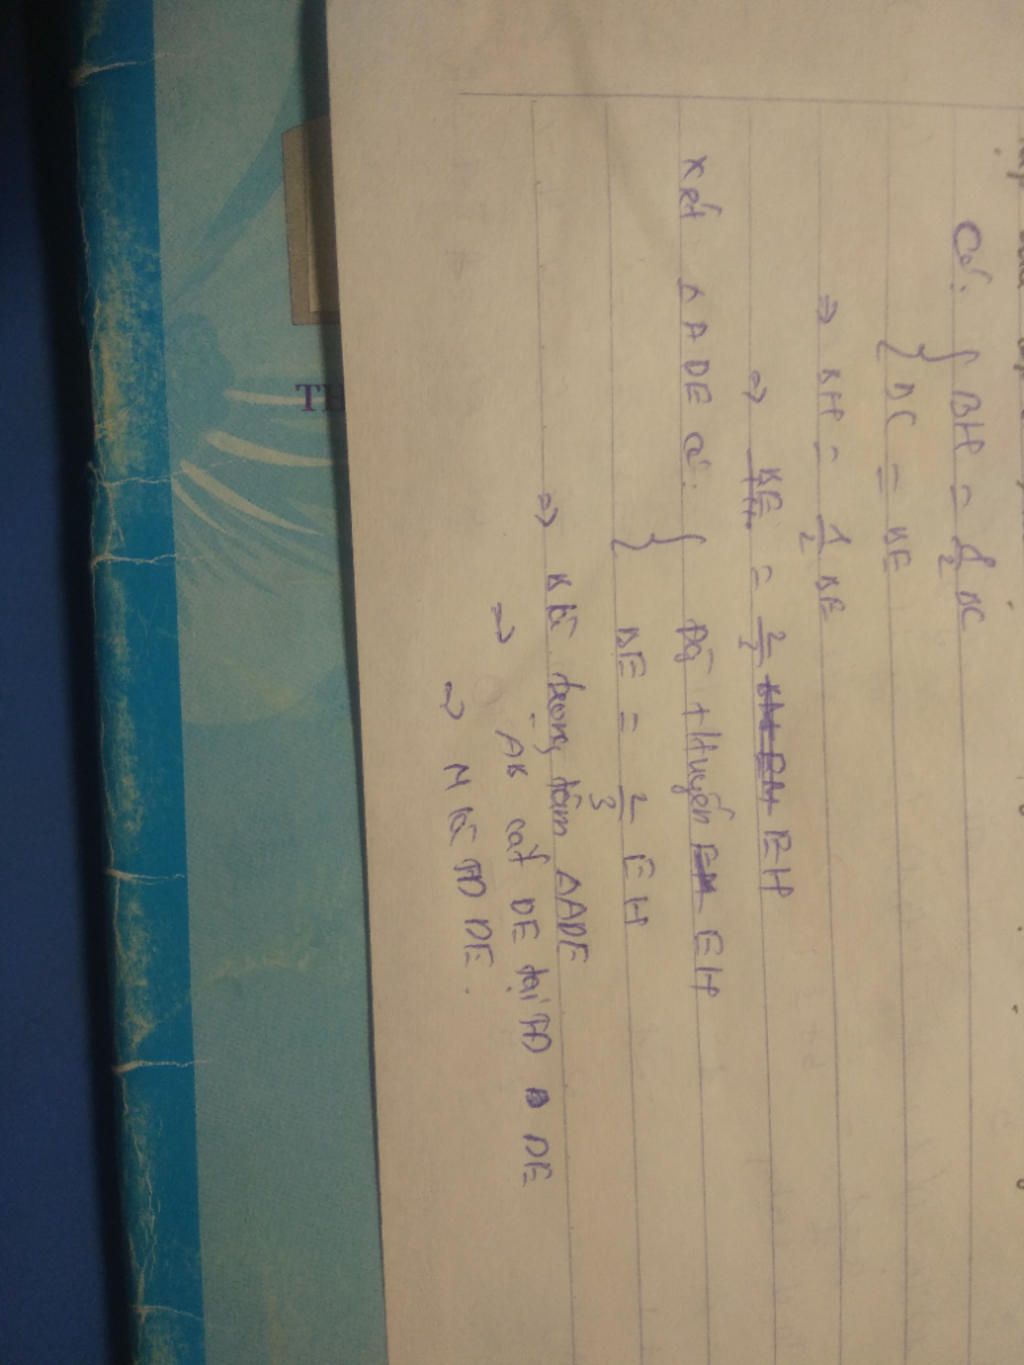 Có: { BH = 1/2 BC
BC = BE
⇒ BH = 1/2 BE
⇒ BE = 2/3 EH
Xét Δ ADE có: { Đg + Huyến EH
BE = 2/3 EH
⇒ B là trọng tâm ΔADE
⇒ AB cắt DE tại TĐ DE
⇒ M là TĐ DE.
TH